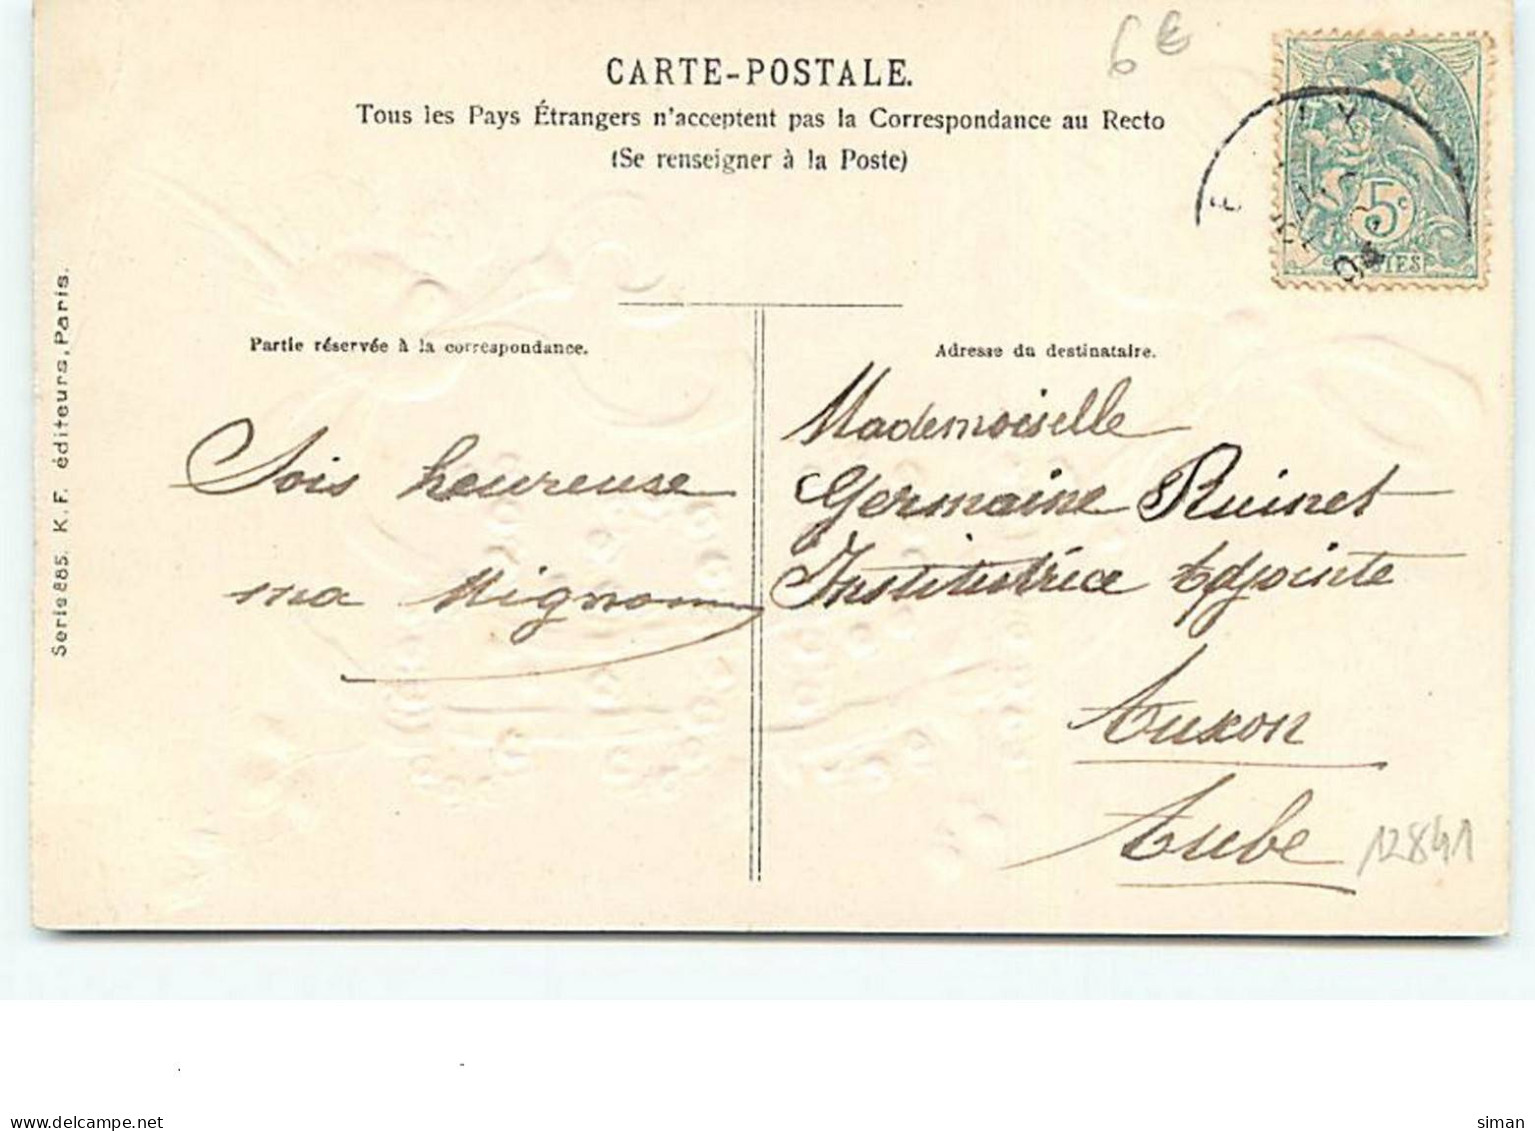 6€
CARTE-POSTALE.
Tous les Pays Étrangers n'acceptent pas la Correspondance au Recto
(Se renseigner à la Poste)
5c
Partie réservée à la correspondance.
Sois heureuse
ma Mignonne
Adresse du destinataire.
Mademoiselle
Germaine Ruinet
Institutrice Adjointe
Auxon
Aube
12841
Serie 885. K.F. éditeurs, Paris.
www.delcampe.net
siman